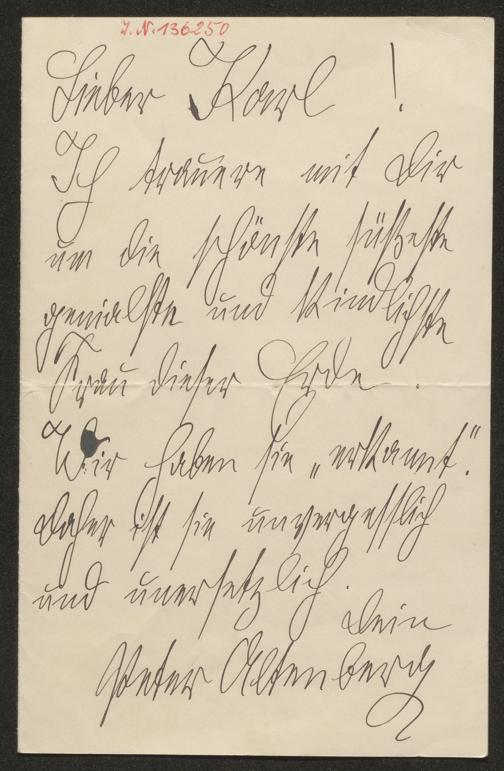 J.N. 136250
Lieber Karl !
Ich trauere mit Dir
um die schönste süßeste
genialste und kindlichste
Frau dieser Erde.
Wir haben sie „erkannt".
Daher ist sie unvergesslich
und unersetzlich.
Dein
Peter Altenberg